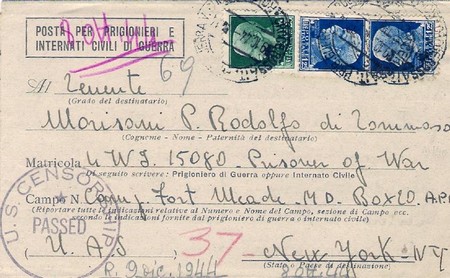 POSTA PER PRIGIONIERI E
INTERNATI CIVILI DI GUERRA
69
Al Tenente
(Grado del destinatario)
Morisani P. Rodolfo di Tommaso
(Cognome - Nome - Paternità del destinatario)
Matricola 4 WI. 15080 - Prisoner of War
(Di seguito scrivere: Prigioniero di Guerra oppure Internato Civile)
Campo N. Camp, Fort Meade - MD. Box 20. A.P.O
(Riportare tutte le indicazioni relative al Numero e Nome del Campo, sezione di Campo ecc.
secondo le indicazioni fornite dal prigioniero di guerra o internato civile)
U.S. CENSORSHIP
PASSED
(U.A.S) 37 - New York - NY
(Stato o Paese di destinazione)
P. 9 dic. 1944